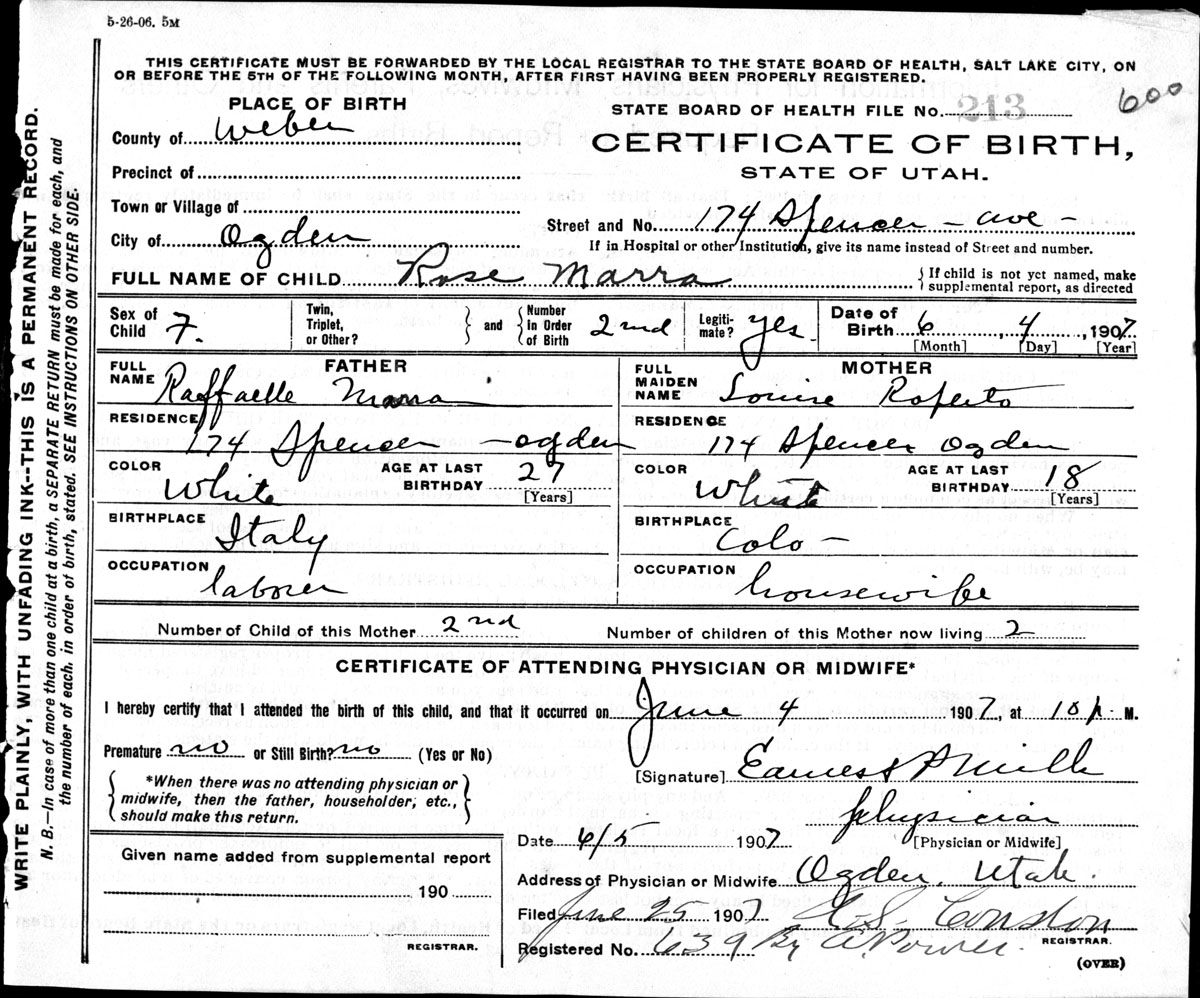 5-26-06. 5M
THIS CERTIFICATE MUST BE FORWARDED BY THE LOCAL REGISTRAR TO THE STATE BOARD OF HEALTH, SALT LAKE CITY, ON
OR BEFORE THE 5TH OF THE FOLLOWING MONTH, AFTER FIRST HAVING BEEN PROPERLY REGISTERED.
600
PLACE OF BIRTH
STATE BOARD OF HEALTH FILE No. 213
County of Weber
CERTIFICATE OF BIRTH,
STATE OF UTAH.
Precinct of
Town or Village of
Street and No. 174 Spencer - ave -
City of Ogden
If in Hospital or other Institution, give its name instead of Street and number.
FULL NAME OF CHILD Rose Marra
{ If child is not yet named, make supplemental report, as directed
Sex of Child F. Twin, Triplet, or Other? } and { Number in Order of Birth 2nd Legiti-mate? yes Date of Birth 6 4, 1907
[Month] [Day] [Year]
FATHER
FULL NAME Raffaelle Marra
RESIDENCE 174 Spencer - Ogden
COLOR White AGE AT LAST BIRTHDAY 27 [Years]
BIRTHPLACE Italy
OCCUPATION laborer
MOTHER
FULL MAIDEN NAME Louise Roperto
RESIDENCE 174 Spencer Ogden
COLOR White AGE AT LAST BIRTHDAY 18 [Years]
BIRTHPLACE Colo -
OCCUPATION housewife
Number of Child of this Mother 2nd Number of children of this Mother now living 2
CERTIFICATE OF ATTENDING PHYSICIAN OR MIDWIFE*
I hereby certify that I attended the birth of this child, and that it occurred on June 4 1907, at 10 p. M.
Premature no or Still Birth? no (Yes or No)
[Signature]
{ *When there was no attending physician or
midwife, then the father, householder, etc.,
should make this return. }
physician
[Physician or Midwife]
Date 6/5 1907
Given name added from supplemental report
190
REGISTRAR.
Address of Physician or Midwife Ogden, Utah.
Filed June 25 1907
REGISTRAR.
Registered No. 639 By A. Power.
(OVER)
WRITE PLAINLY, WITH UNFADING INK--THIS IS A PERMANENT RECORD.
N. B.—In case of more than one child at a birth, a SEPARATE RETURN must be made for each, and
the number of each, in order of birth, stated. SEE INSTRUCTIONS ON OTHER SIDE.